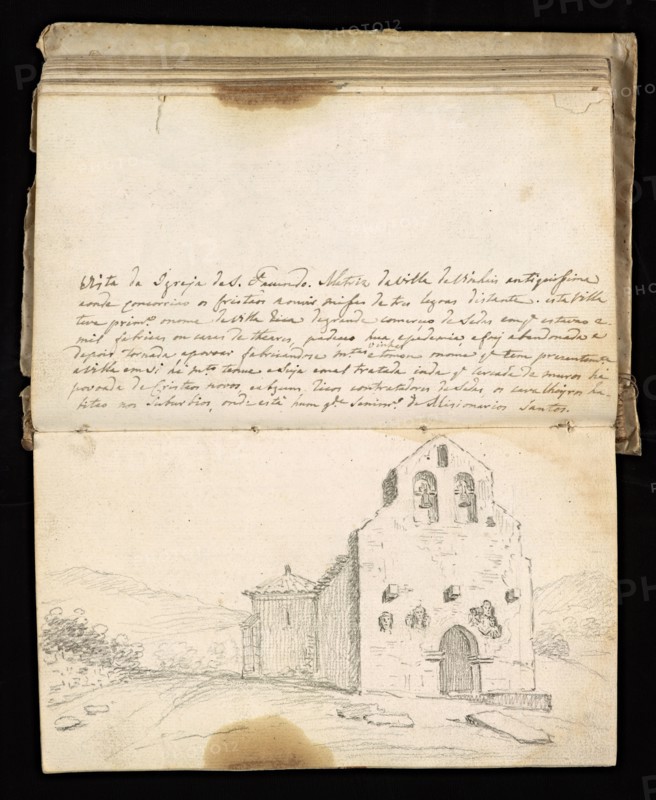 Vista da Igreja de S. Facundo. Matris da Villa de Vinhais antiquissima
aonde concorrião os Cristaos a ouvir missa de tres legoas distante. esta Villa
teve prim.º o nome de Villa Rica de grande comercio de Sedas em q. estavão a
mil fabricas ou cazas de theares, padeceu hua epidemia e foi abandonada e
depois tornada a povoar fabricandose e tomou o nome q. tem
Vinhas
a Villa em si he m.to tenue e suja e mal tratada inda q. sercada de muros he
povoada de Cristãos novos, e alguns ricos contratadores de Sedas, os cavalheyros ha-
bitão nos Suburbios, onde está hum g.de Semin.º de Misionarios Santos.
PHOTO12